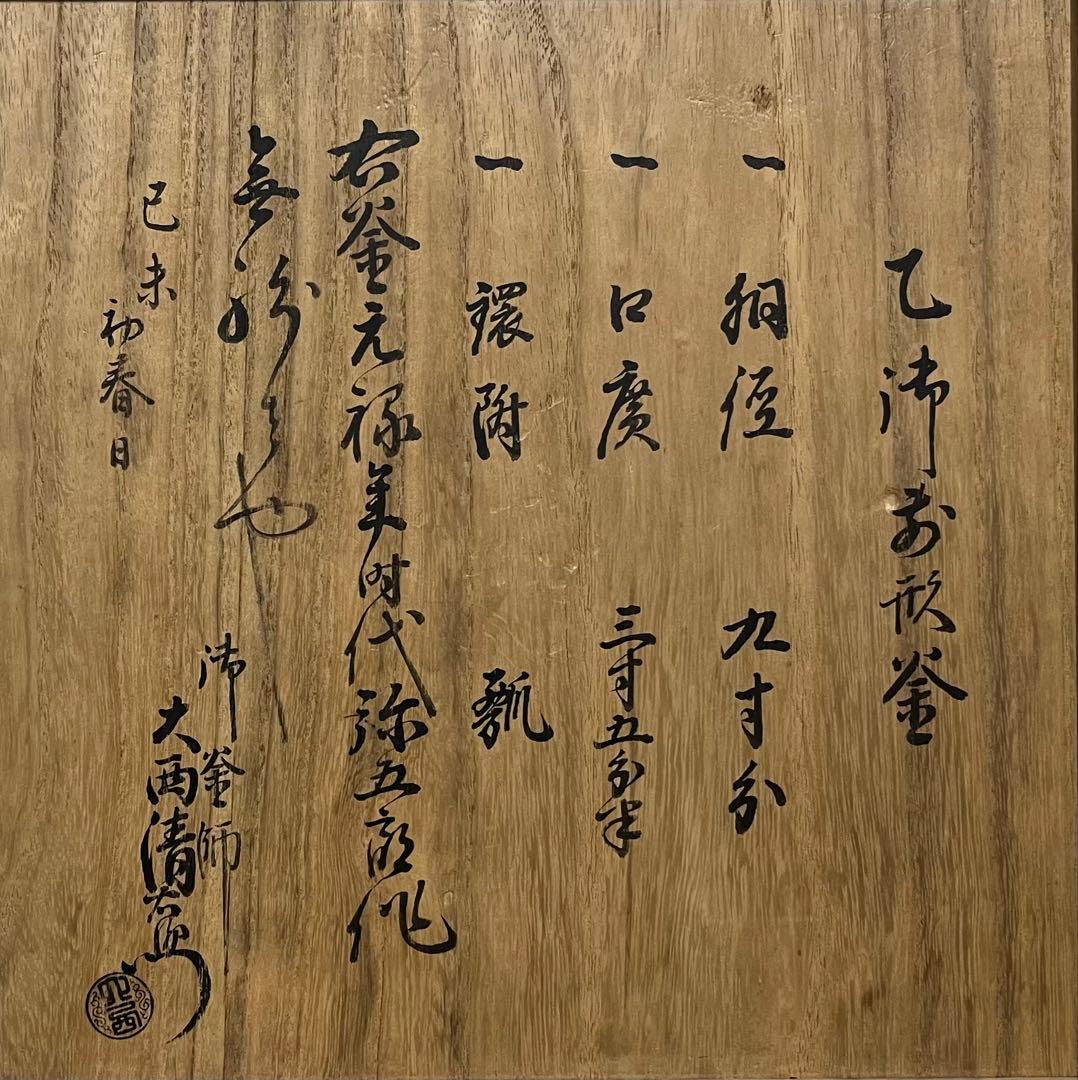 乙御前形釜
一 胴径 九寸分
一 口廣 三寸五分半
一 環附 瓢
右釜元禄年時代弥五郎作
無紛者也
己未
初春日
御釜師
大西清右衛門
大西